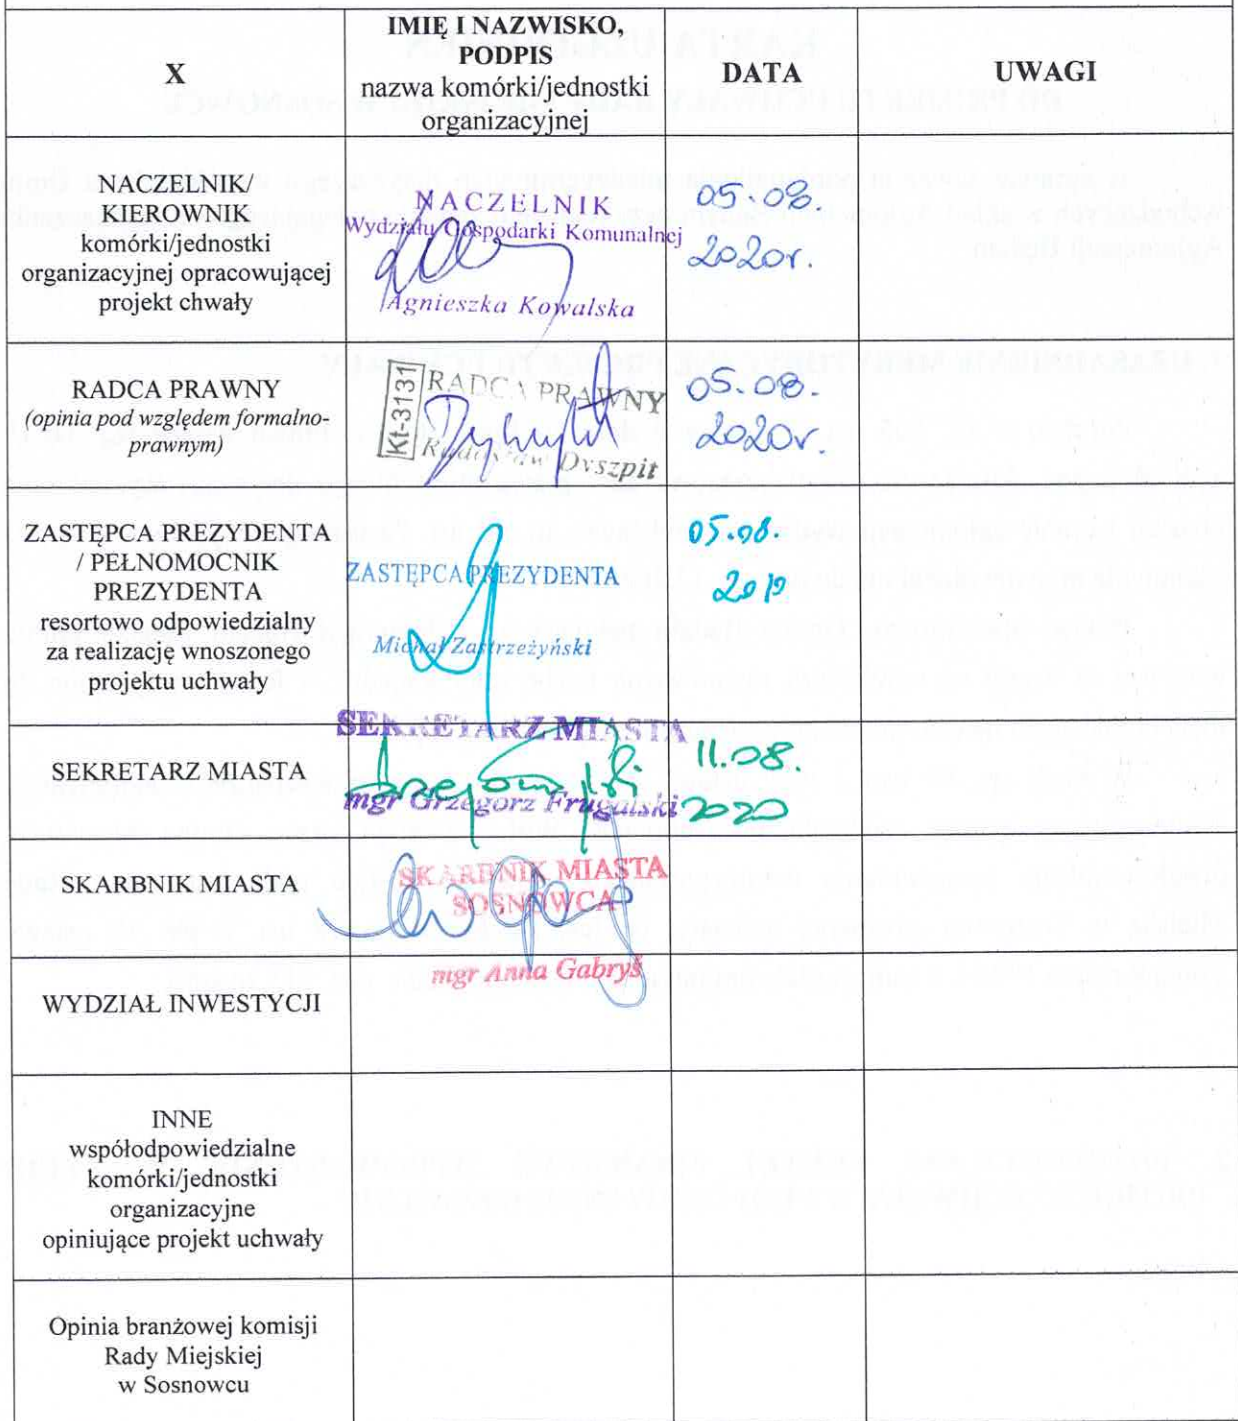 X
IMIĘ I NAZWISKO,
PODPIS
nazwa komórki/jednostki
organizacyjnej
DATA
UWAGI
NACZELNIK/
KIEROWNIK
komórki/jednostki
organizacyjnej opracowującej
projekt chwały
NACZELNIK
Wydziału Gospodarki Komunalnej
Agnieszka Kowalska
05.08.
2020r.
RADCA PRAWNY
(opinia pod względem formalno-
prawnym)
Kt-3131
RADCA PRAWNY
Radosław Dyszpit
05.08.
2020r.
ZASTĘPCA PREZYDENTA
/ PEŁNOMOCNIK
PREZYDENTA
resortowo odpowiedzialny
za realizację wnoszonego
projektu uchwały
ZASTĘPCA PREZYDENTA
Michał Zastrzeżyński
05.08.
SEKRETARZ MIASTA
SEKRETARZ MIASTA
mgr Grzegorz Frugalski
11.08.
2020
SKARBNIK MIASTA
SKARBNIK MIASTA
SOSNOWCA
mgr Anna Gabryś
WYDZIAŁ INWESTYCJI
INNE
współodpowiedzialne
komórki/jednostki
organizacyjne
opiniujące projekt uchwały
Opinia branżowej komisji
Rady Miejskiej
w Sosnowcu